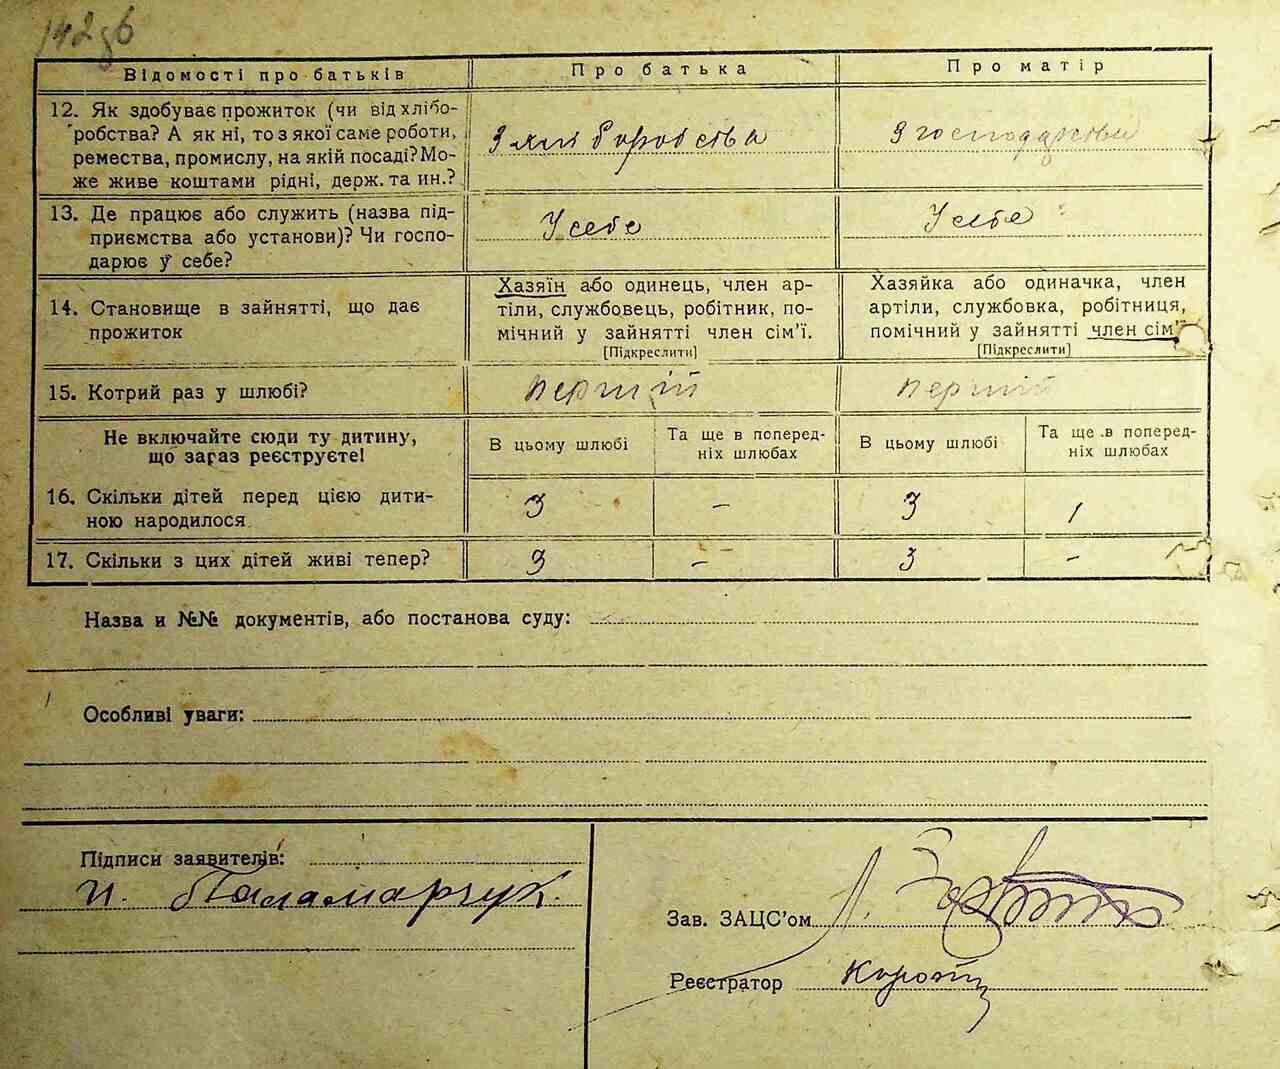 142 зв
Відомості про батьків
Про батька
Про матір
12. Як здобуває прожиток (чи від хлібо-
робства? А як ні, то з якої саме роботи,
ремества, промислу, на якій посаді? Мо-
же живе коштами рідні, держ. та ин.?
З хліборобства
З господарства
13. Де працює або служить (назва під-
приємства або установи)? Чи госпо-
дарює у себе?
У себе
У себе
14. Становище в зайнятті, що дає
прожиток
Хазяїн або одинець, член ар-
тіли, службовець, робітник, по-
мічний у зайнятті член сім'ї.
[Підкреслити]
Хазяйка або одиначка, член
артіли, службовка, робітниця,
помічний у зайнятті член сім'
[Підкреслити]
15. Котрий раз у шлюбі?
перший
перший
Не включайте сюди ту дитину,
що зараз реєструєте!
В цьому шлюбі
Та ще в поперед-
ніх шлюбах
В цьому шлюбі
Та ще в поперед-
ніх шлюбах
16. Скільки дітей перед цією дити-
ною народилося
3
–
3
1
17. Скільки з цих дітей живі тепер?
3
–
3
–
Назва и №№ документів, або постанова суду:
Особливі уваги:
Підписи заявителів:
П. Паламарчук.
Зав. ЗАЦС'ом
Реєстратор